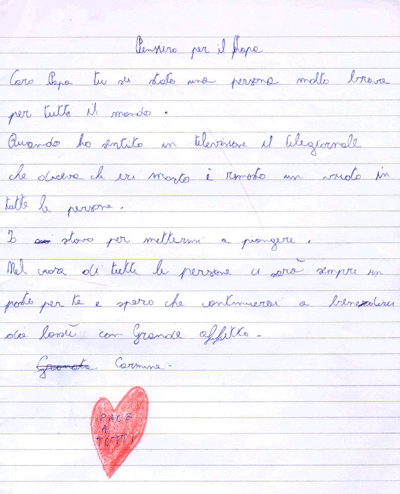 Pensiero per il Papa
Caro Papa tu sei stato una persona molto brava
per tutto il mondo.
Quando ho sentito in televisione il telegiornale
che diceva ch eri morto è rimasto un vuoto in
tutte le persone.
Io stavo per mettermi a piangere.
Nel cuore di tutte le persone ci sarà sempre un
posto per te e spero che continuerai a benedirci
da lassù con Grande affetto.
Carmine.
PACE
A
TUTTI